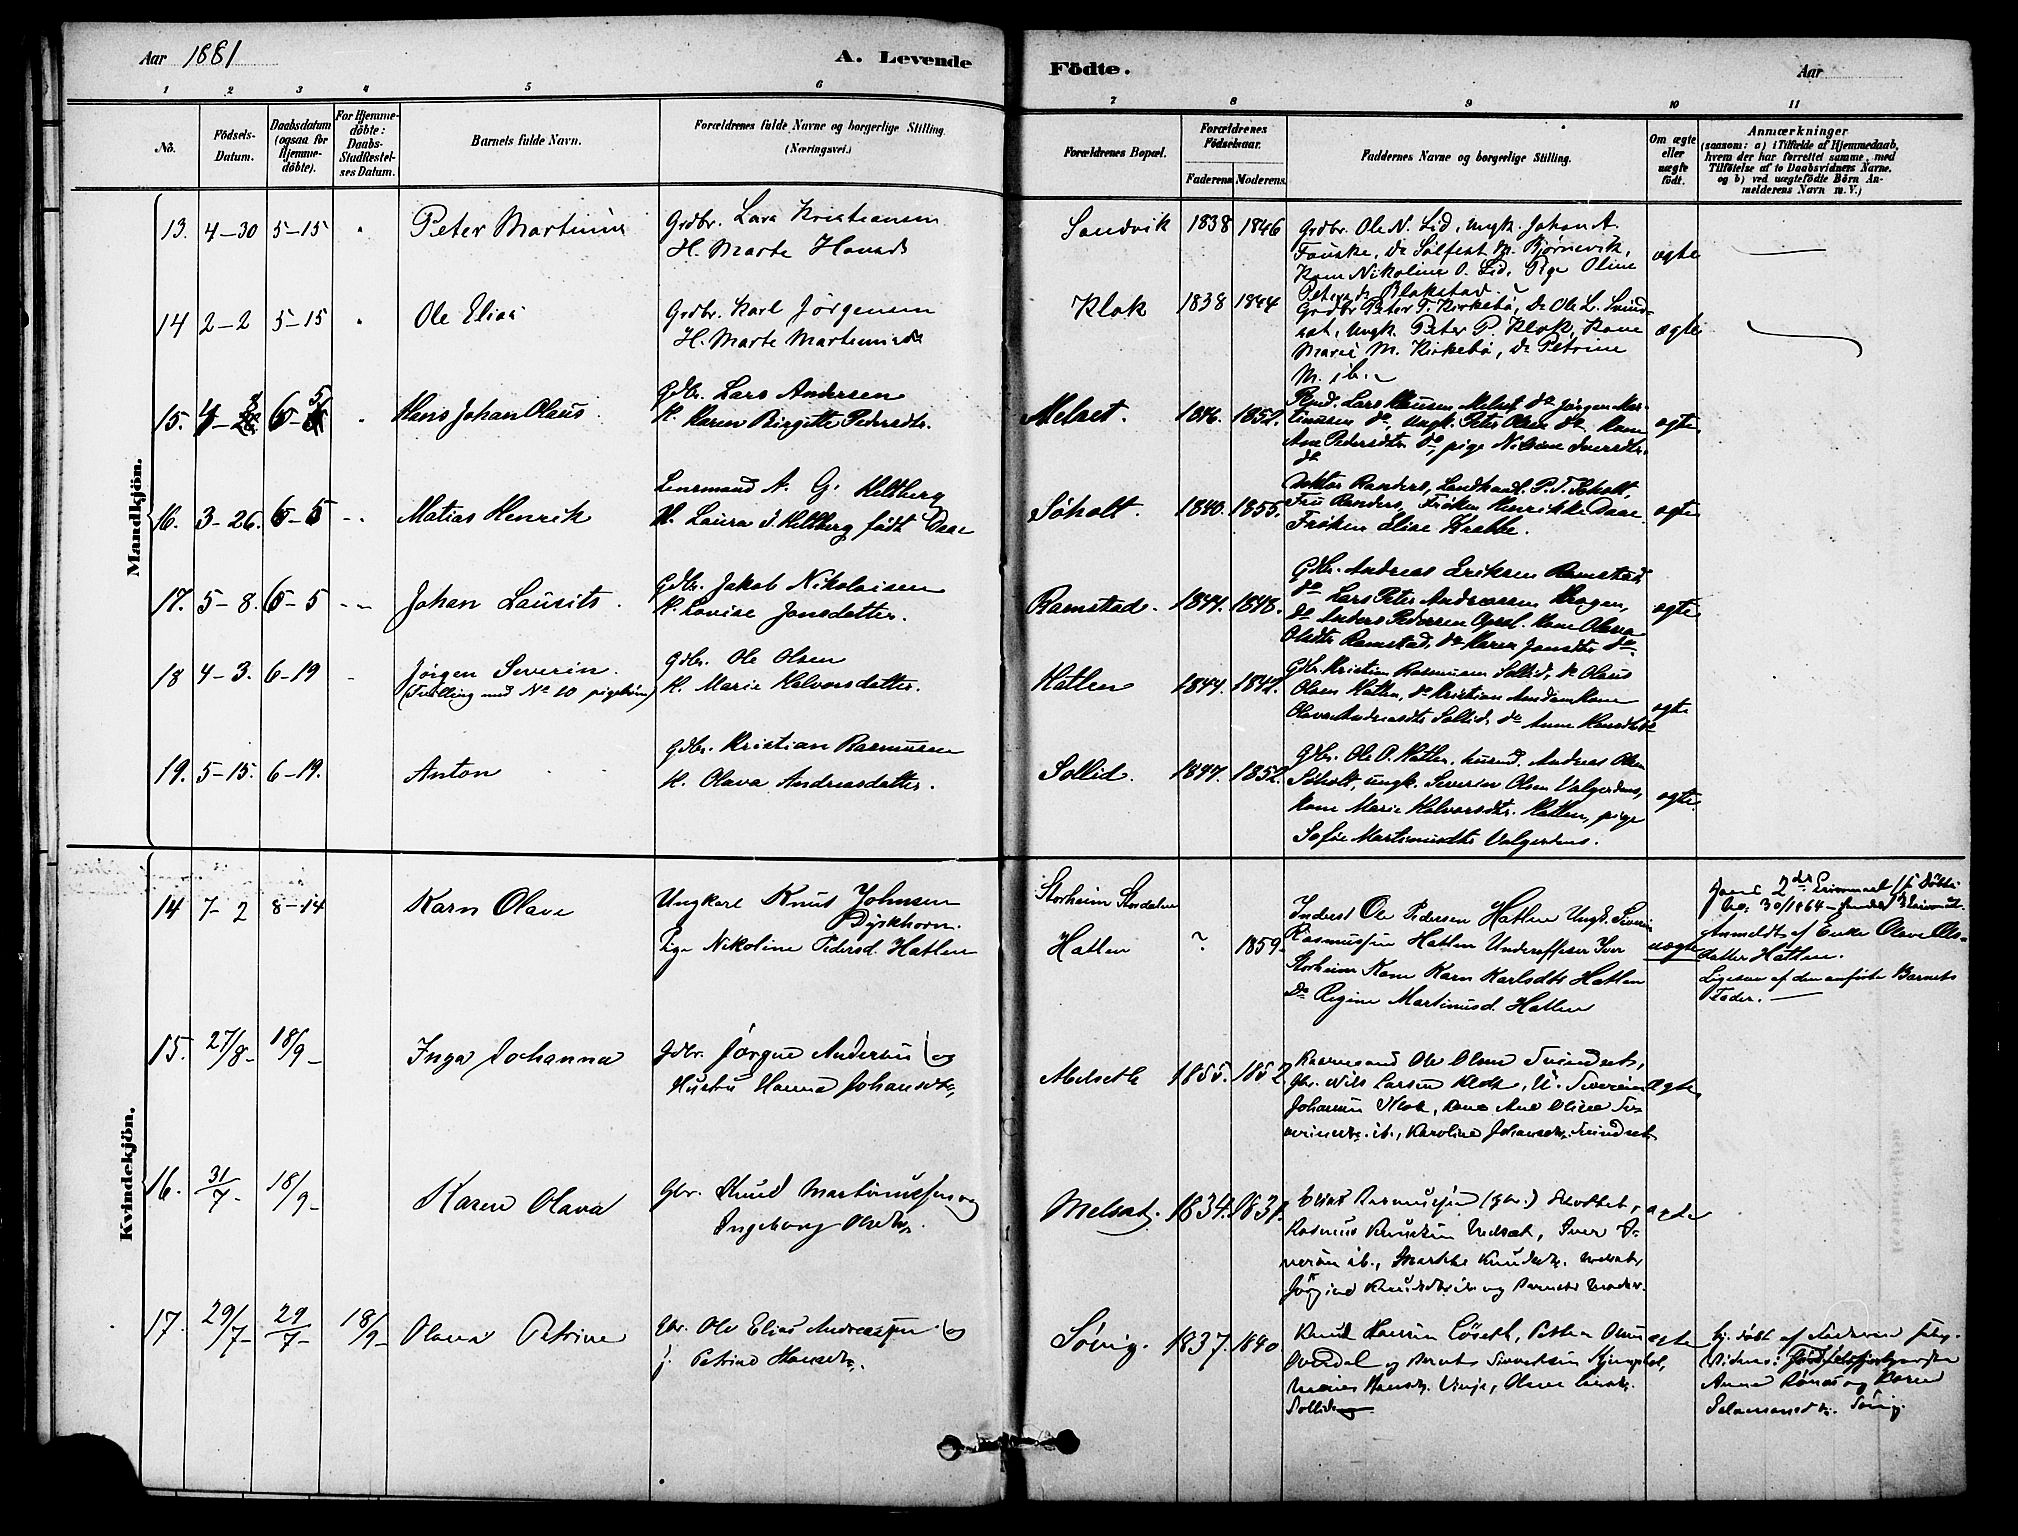 Aar 1881
A. Levende
Födte.
Aar
1 2 3 4 5 6 7 8 9 10 11
No.
Födsels-
Datum.
Daabsdatum
(ogsaa for
Hjemme-
döbte).
For Hjemme-
döbte:
Daabs-
Stadfæstel-
ses Datum.
Barnets fulde Navn.
Forældrenes fulde Navne og borgerlige Stilling.
(Næringsvei.)
Forældrenes Bopæl.
Forældrenes
Födselsaar.
Faderens Moderens.
Faddernes Navne og borgerlige Stilling.
Om ægte
eller
uægte
födt.
Anmærkninger
(saasom: a) i Tilfælde af Hjemmedaab,
hvem der har forrettet samme, med
Tilföielse af to Daabsvidners Navne,
og b) ved uægtefödte Börn An-
melderens Navn m. V.)
Mandkjön.
13. 4-30 5-15 Peter Martinus
Grdbr. Lars Kristiansen
H. Marte Hansd
Sandvik 1838 1846
Grdbr. Ole N. Lid, ungk. Johan A.
Fauske, do Sølfest M. Bjørnevik,
Kone Nikoline O. Lid, Pige Oline
Blakstad
ægte
14 2-2 5-15 Ole Elias
Grdbr. Karl Jørgensen
H. Marte Martinusd
Klok 1838 1844
Grdbr Peter T. Kirkebø, do Ole L. Svind-
set, ungk. Peter P. Klok, Kone
Marie M. Kirkebø, do Petrine
M. ib.
ægte
15. Hans Johan Olaus
Gdbr. Lars Andersen
H. Karen Birgitte Pedersdtr.
Melset. 1846. 1852.
Lars Hansen Melset, do Jørgen Mar-
tinusen do, Ungk. Peter Olsen do Kone
Ane Pedersdtr do, pige Nilsine Iversdtr.
do
ægte
16. 3-26. 6-5 Matias Henrik
Lensmand A. G. Heltberg
H. Laura J. Heltberg født Daae
Søholt 1840. 1855.
Doktor Randers, Landhandl. P. T. Søholt,
Fru Randers, Frøken Henrikke Daae
Frøken Elise Krabbe.
ægte
17. 5-8. 6-5 Johan Lausits.
Gdbr. Jakob Nikolaisen
H. Lovise Jonsdatter.
Ramstad. 1844. 1848.
Gdbr. Andreas Eriksen Ramstad
do Lars Peter Andreassen Kragen,
do Anders Pedersen Opsal. Kone Olava
Olsdtr Ramstad, do Karen Jonsdtr do
ægte
18 4-3. 6-19 Jørgen Severin.
(Tvilling med No 10 pigebørn)
Gdbr. Ole Olsen
H. Marie Halvorsdatter.
Hatlen 1844. 1842.
Gdbr. Kristian Rasmusen Sollid, do Olaus
Olsen Hatlen, do Kristian Amdam Kone
Olava Andreasdtr Sollid, do Anne Hansdtr
ægte
19. 5-15. 6-19. Anton
Gdbr. Kristian Rasmusen
H. Olava Andreasdatter.
Sollid. 1847. 1852.
Gdbr. Ole O. Hatlen, husmd. Andreas Olsen
Søholt, ungk. Severin Olsen Valgerdens,
Kone Marie Halvorsdtr. Hatlen, pige
Sofie Martinusdtr Valgerdens.
ægte.
Kvindekjön.
14 7-2 8-14 Karn Olave
Ungkarl Knut Johnsen
Dyskhorn.
Pige Nikoline Pedersd. Hatlen
Storheim Stordalen
Hatlen ? 1859.
Inderst Ole Pedersen Hatlen Ungk. Severin
Rasmussen Hatlen Underofficer Iver
Storheim Kone Karn Karlsdtr Hatlen
Do Regine Martinusd. Hatlen
uægte
Anmeldt af Enke Olave Ols-
datter Hatlen.
Ligesaa af den anførte Barnets
Fader.
15. 27/8- 18/9- Inga Johanna
Gdbr. Jørgen Andersen og
Hustru Hanna Johansdtr.
Melseth 1855. 1852
Ole Olsen Svindset,
Gbr. Nils Larsen Klok, U. Severin
Johansen Klok, Kone Ane Olivea Se-
verinsdtr. ib., Karoline Johansdtr. Svindset
ægte
16. 31/7- 18/9- Karen Olava
Gbr. Knud Martinussen og
Ingeborg Olsdtr.
Melset. 1834. 1837.
Elias Rasmussen (Gbr.)
Rasmus Knudsen Melset, Iver Se-
verin ib., Marthe Knudsdtr. Melset
og Barnets Moder.
ægte
17. 29/7- 29/7- 18/9- Olava Petrine
Gbr. Ole Elias Andreassen og
Petrine Hansdtr.
Søvig. 1837. 1840
Knud Hansen Løseth, Petter Olsen
Sollid
ægte
hj. døbt af
Anne Rønes og Karen
Salamonsdtr. Søvig.